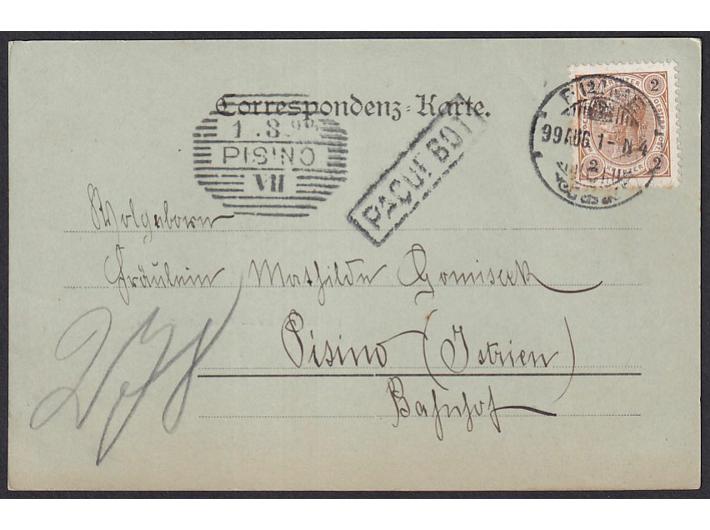 Correspondenz-Karte.
2
2 2
FIUME
99 AUG 1-N 4
1.8.99
PISINO
VII
PAQUEBOT
Wolgeborn
Fräulein Mathilde Gomiseck
Pisino (Istrien)
Bahnhof